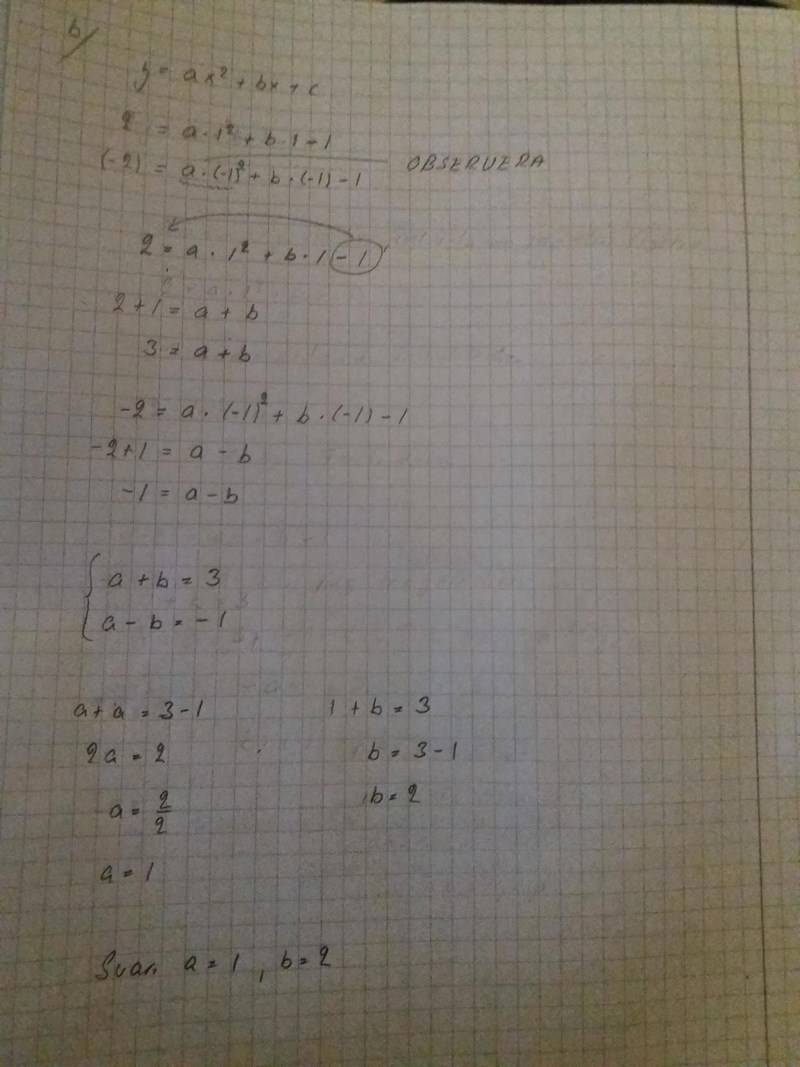 b/
y = ax² + bx + c
2 = a · 1² + b · 1 - 1
(-2) = a · (-1)² + b · (-1) - 1 OBSERVERA
2 = a · 1² + b · 1 - 1
2 + 1 = a + b
3 = a + b
-2 = a · (-1)² + b · (-1) - 1
-2 + 1 = a - b
-1 = a - b
{ a + b = 3
a - b = -1
a + a = 3 - 1
2a = 2
a = 2/2
a = 1
1 + b = 3
b = 3 - 1
b = 2
Svar. a = 1, b = 2